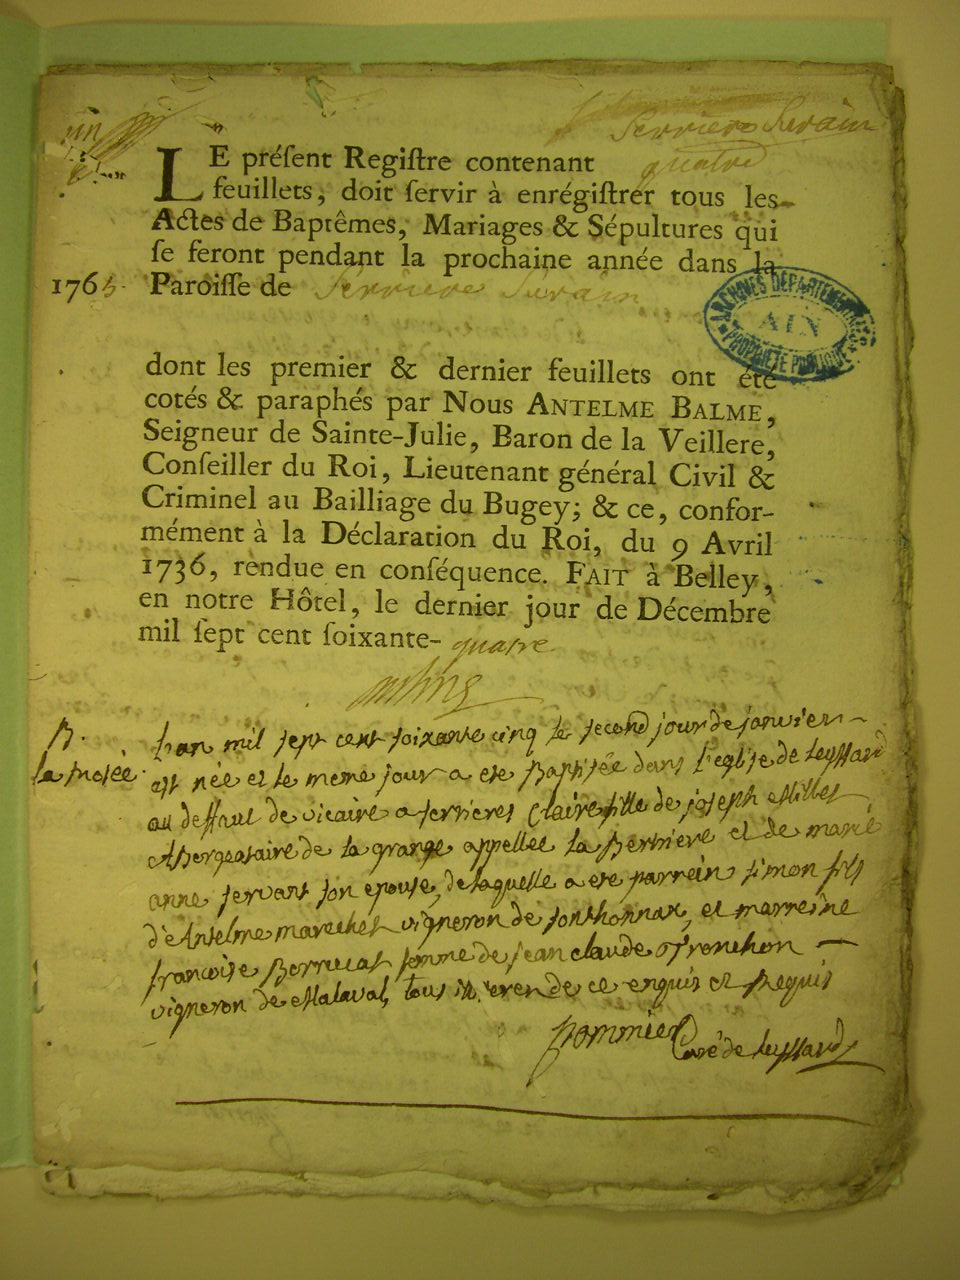 Serrieres Surain
quatre
LE préſent Regiſtre contenant
feuillets, doit ſervir à enrégiſtrer tous les
Actes de Baptêmes, Mariages & Sépultures qui
ſe feront pendant la prochaine année dans la
1765. Paroiſſe de Serriere Surain
ARCHIVES DEPARTEMENTALES
AIN
PROPRIÉTÉ PUBLIQUE
dont les premier & dernier feuillets ont été
cotés & paraphés par Nous ANTELME BALME,
Seigneur de Sainte-Julie, Baron de la Veillere,
Conſeiller du Roi, Lieutenant général Civil &
Criminel au Bailliage du Bugey; & ce, confor-
mément à la Déclaration du Roi, du 9 Avril
1736, rendue en conſéquence. FAIT à Belley,
en notre Hôtel, le dernier jour de Décembre
mil ſept cent ſoixante-quatre
B. L'an mil sept cent soixante cinq le second jour de janvier
est née et le meme jour a ete Baptisée dans l'eglise de leyssard
au deffaut de vicaire a serrieres Claire fille de joseph Millet
Abergataire de la grange appellee la Berniere et de marie
anne servant son epouse, de laquelle a ete parrein simon fils
d'Antelme marechet vigneron de sonthonnax, et marreine
francoise Berruat femme de jean claude
vigneron de Malaval, tous de ce enquis et Requis
pommier Curé de leyssard